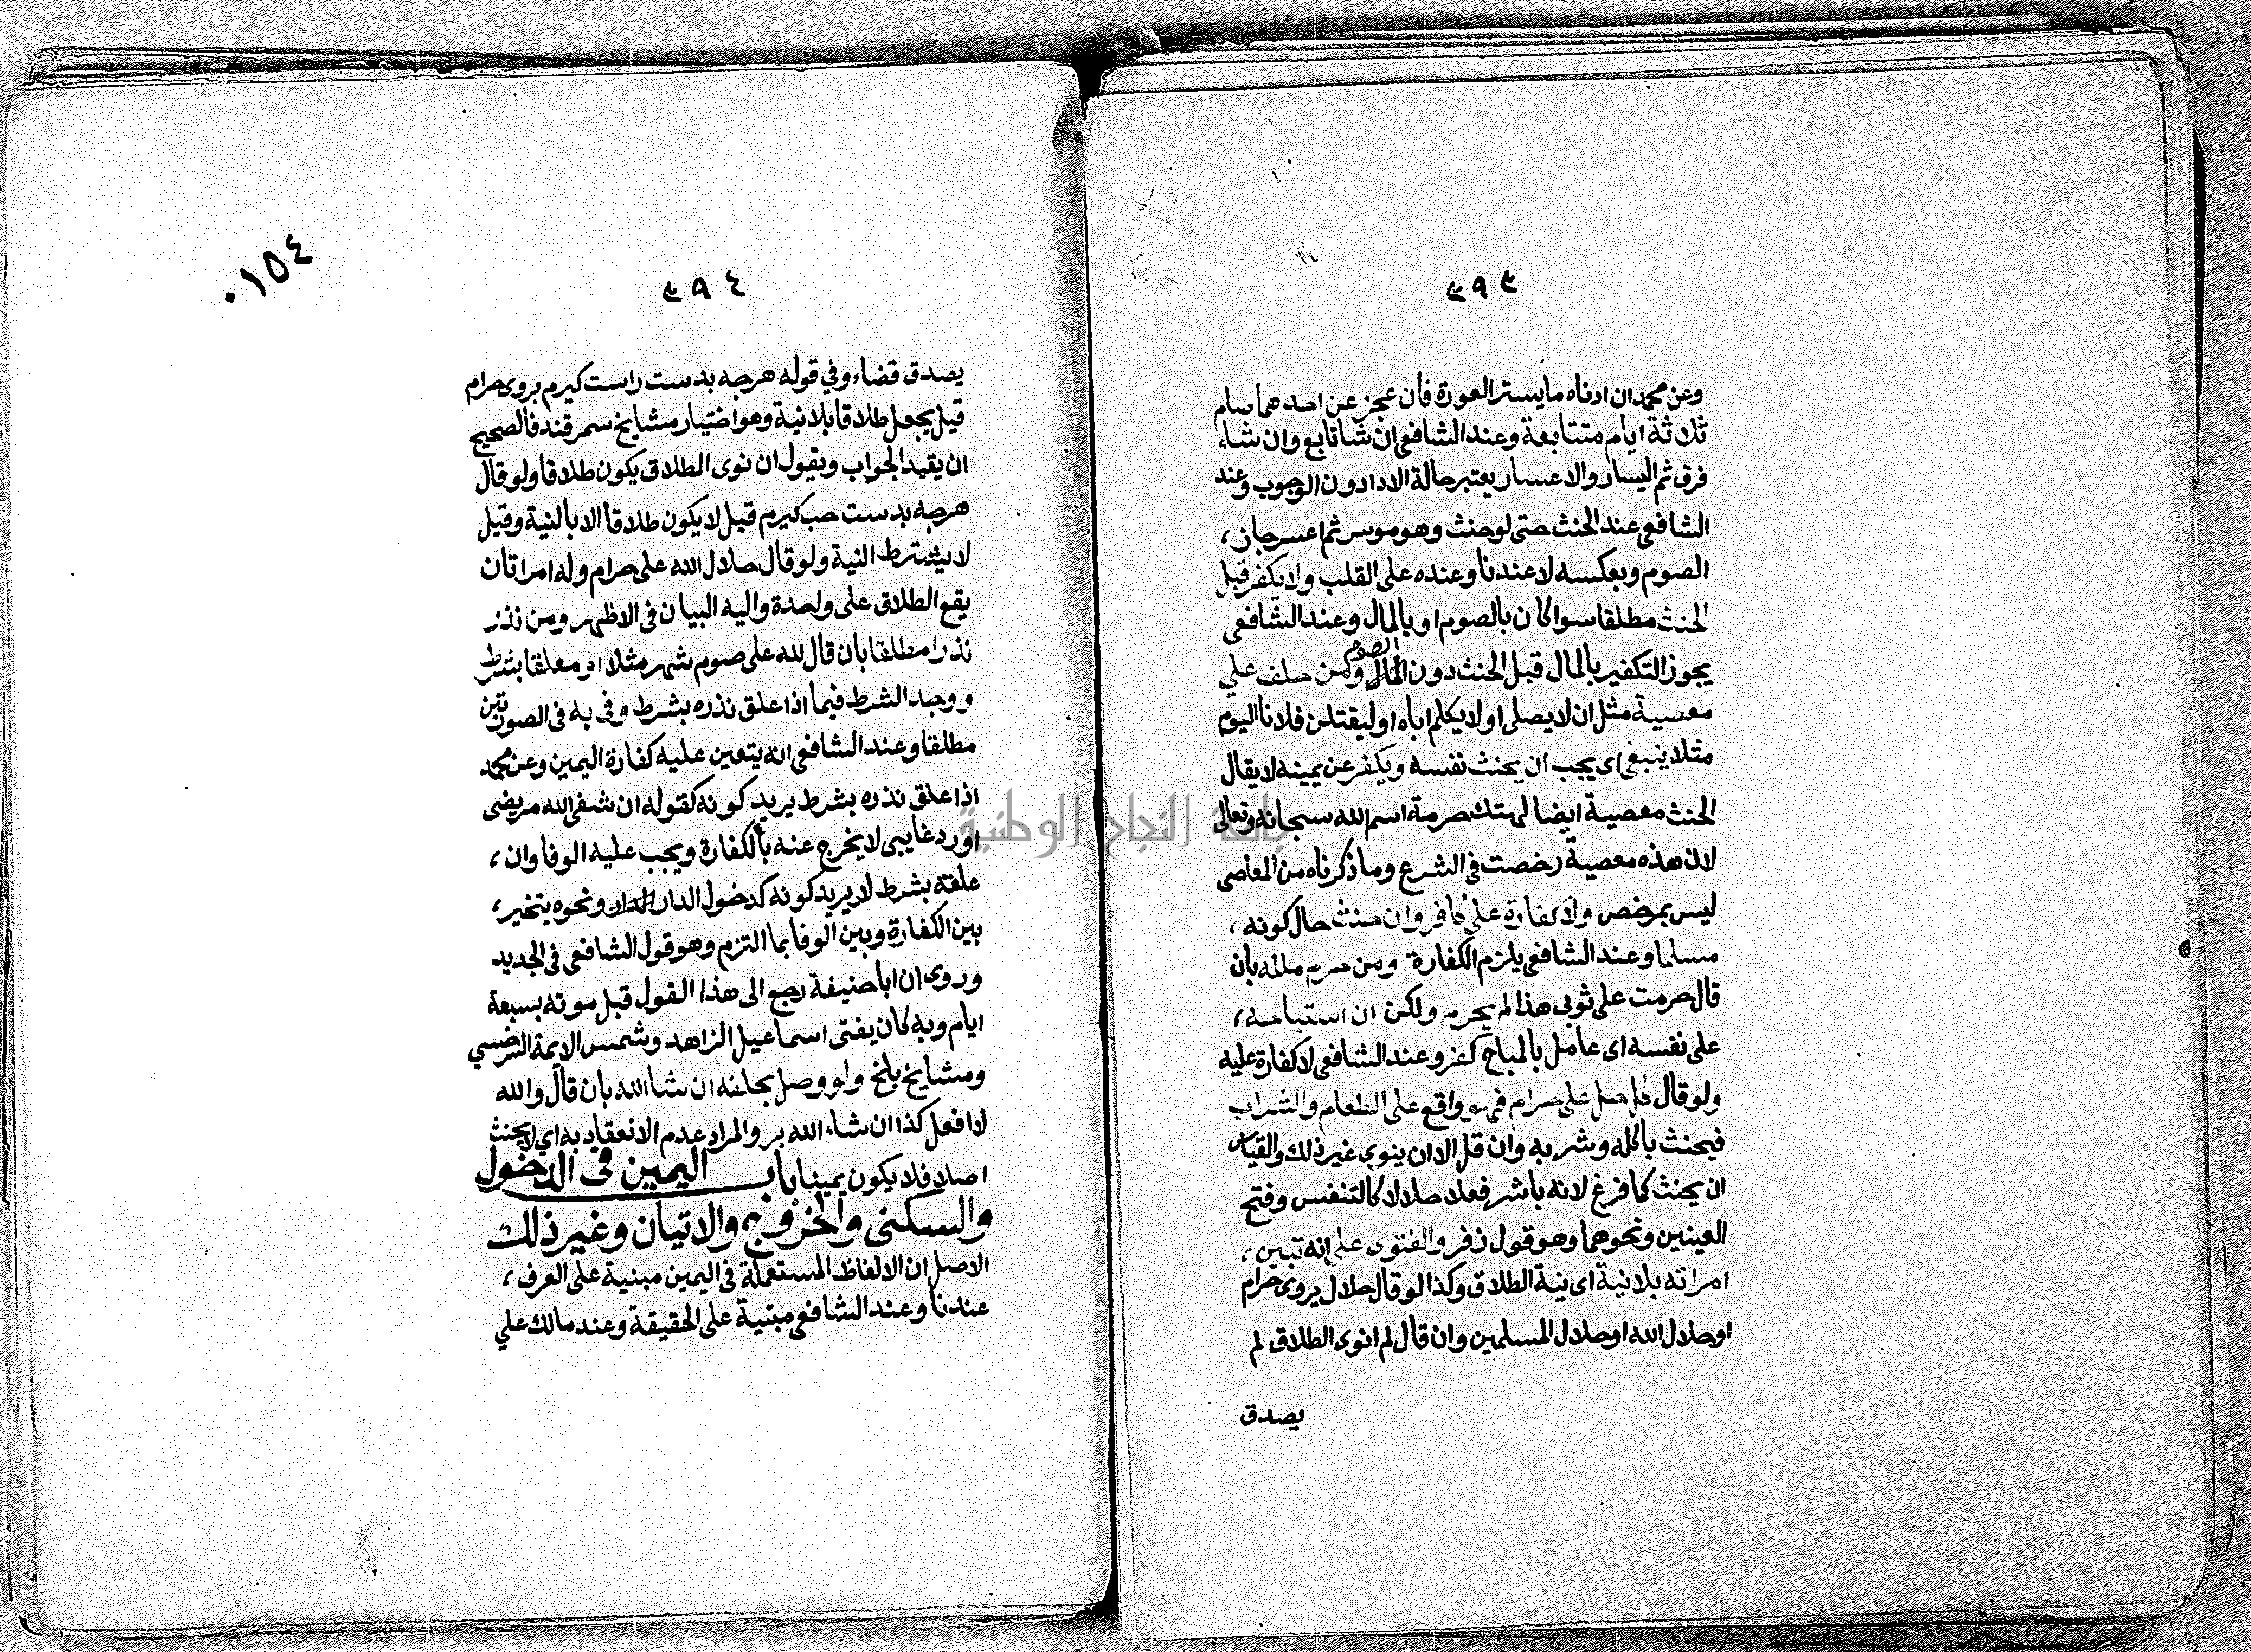 ٣٩٣
وعن محمد ان ادناه ما يستر العورة فان عجز عن احدهما صام
ثلاثة ايام متتابعة وعند الشافعي ان شا تابع وان شاء
فرق ثم اليسار والاعسار يعتبر حالة الادا دون الوجوب وعند
الشافعي عند الحنث حتى لو حنث وهو موسر ثم اعسر جاز،
الصوم وبعكسه لا عندنا وعنده على القلب ولا يكفر قبل
الحنث مطلقا سوا كان بالصوم او بالمال وعند الشافعي
يجوز التكفير بالمال قبل الحنث دون الصوم ومن حلف علي
معصية مثل ان لا يصلى او لا يكلم اباه او ليقتلن فلانا اليوم
مثلا ينبغي اى يجب ان يحنث نفسه ويكفر عن يمينه لا يقال
الحنث معصية ايضا لهتك حرمة اسم الله سبحانه وتعالى
لان هذه معصية رخصت في الشرع وما ذكرناه من المعاصى
ليس بمرخص ولا كفارة على كافر وان حنث حال كونه،
مسلما وعند الشافعي يلزم الكفارة ومن حرم ملكه بان
قال حرمت على ثوبى هذا لم يحرم ولكن ان استباحه،
على نفسه اى عامل بالمباح كفر وعند الشافعي لا كفارة عليه
ولو قال كل حل على حرام فهو واقع على الطعام والشراب
فيحنث باكله وشربه وان قل الا ان ينوي غير ذلك والقياس
ان يحنث كما فرغ لانه باشر فعلا حلالا كالتنفس وفتح
العينين ونحوهما وهو قول زفر والفتوى على انه تبين،
امراته بلا نية اى نية الطلاق وكذا لو قال حلال بروى حرام
او حلال الله او حلال المسلمين وان قال لم انوى الطلاق لم
يصدق
٠١٥٤
٣٩٤
يصدق قضاء وفي قوله هرجه بدست راست كيرم بروى حرام
قيل يجعل طلاقا بلا نية وهو اختيار مشايخ سمرقند فالصحيح
ان يقيد الجواب ويقول ان نوى الطلاق يكون طلاقا ولو قال
هرجه بدست جب كيرم قيل لا يكون طلاقا الا بالنية وقيل
لا يشترط النية ولو قال حلال الله على حرام وله امراتان
يقع الطلاق على واحدة واليه البيان فى الاظهر ومن نذر
نذرا مطلقا بان قال لله على صوم شهر مثلا او معلقا بشرط
ووجد الشرط فيما اذا علق نذره بشرط وفى به فى الصورتين
مطلقا وعند الشافعي انه يتعين عليه كفارة اليمين وعن محمد
اذا علق نذره بشرط يريد كونه كقوله ان شفى الله مريضى
او رد غايبى لا يخرج عنه بالكفارة ويجب عليه الوفا وان،
علقه بشرط لا يريد كونه كدخول الدار ونحوه يتخير،
بين الكفارة وبين الوفا بما التزم وهو قول الشافعي فى الجديد
وروى ان ابا حنيفة رجع الى هذا القول قبل موته بسبعة
ايام وبه كان يفتى اسماعيل الزاهد وشمس الايمة السرخسي
ومشايخ بلخ ولو وصل بحلفه ان شا الله بان قال والله
لا افعل كذا ان شاء الله بر والمراد عدم الانعقاد به اي لا يحنث
اصلا فلا يكون يمينا باب اليمين فى الدخول
والسكنى والخروج والاتيان وغير ذلك
الاصل ان الالفاظ المستعملة فى اليمين مبنية على العرف،
عندنا وعند الشافعي مبنية على الحقيقة وعند مالك علي
جامعة النجاح الوطنية